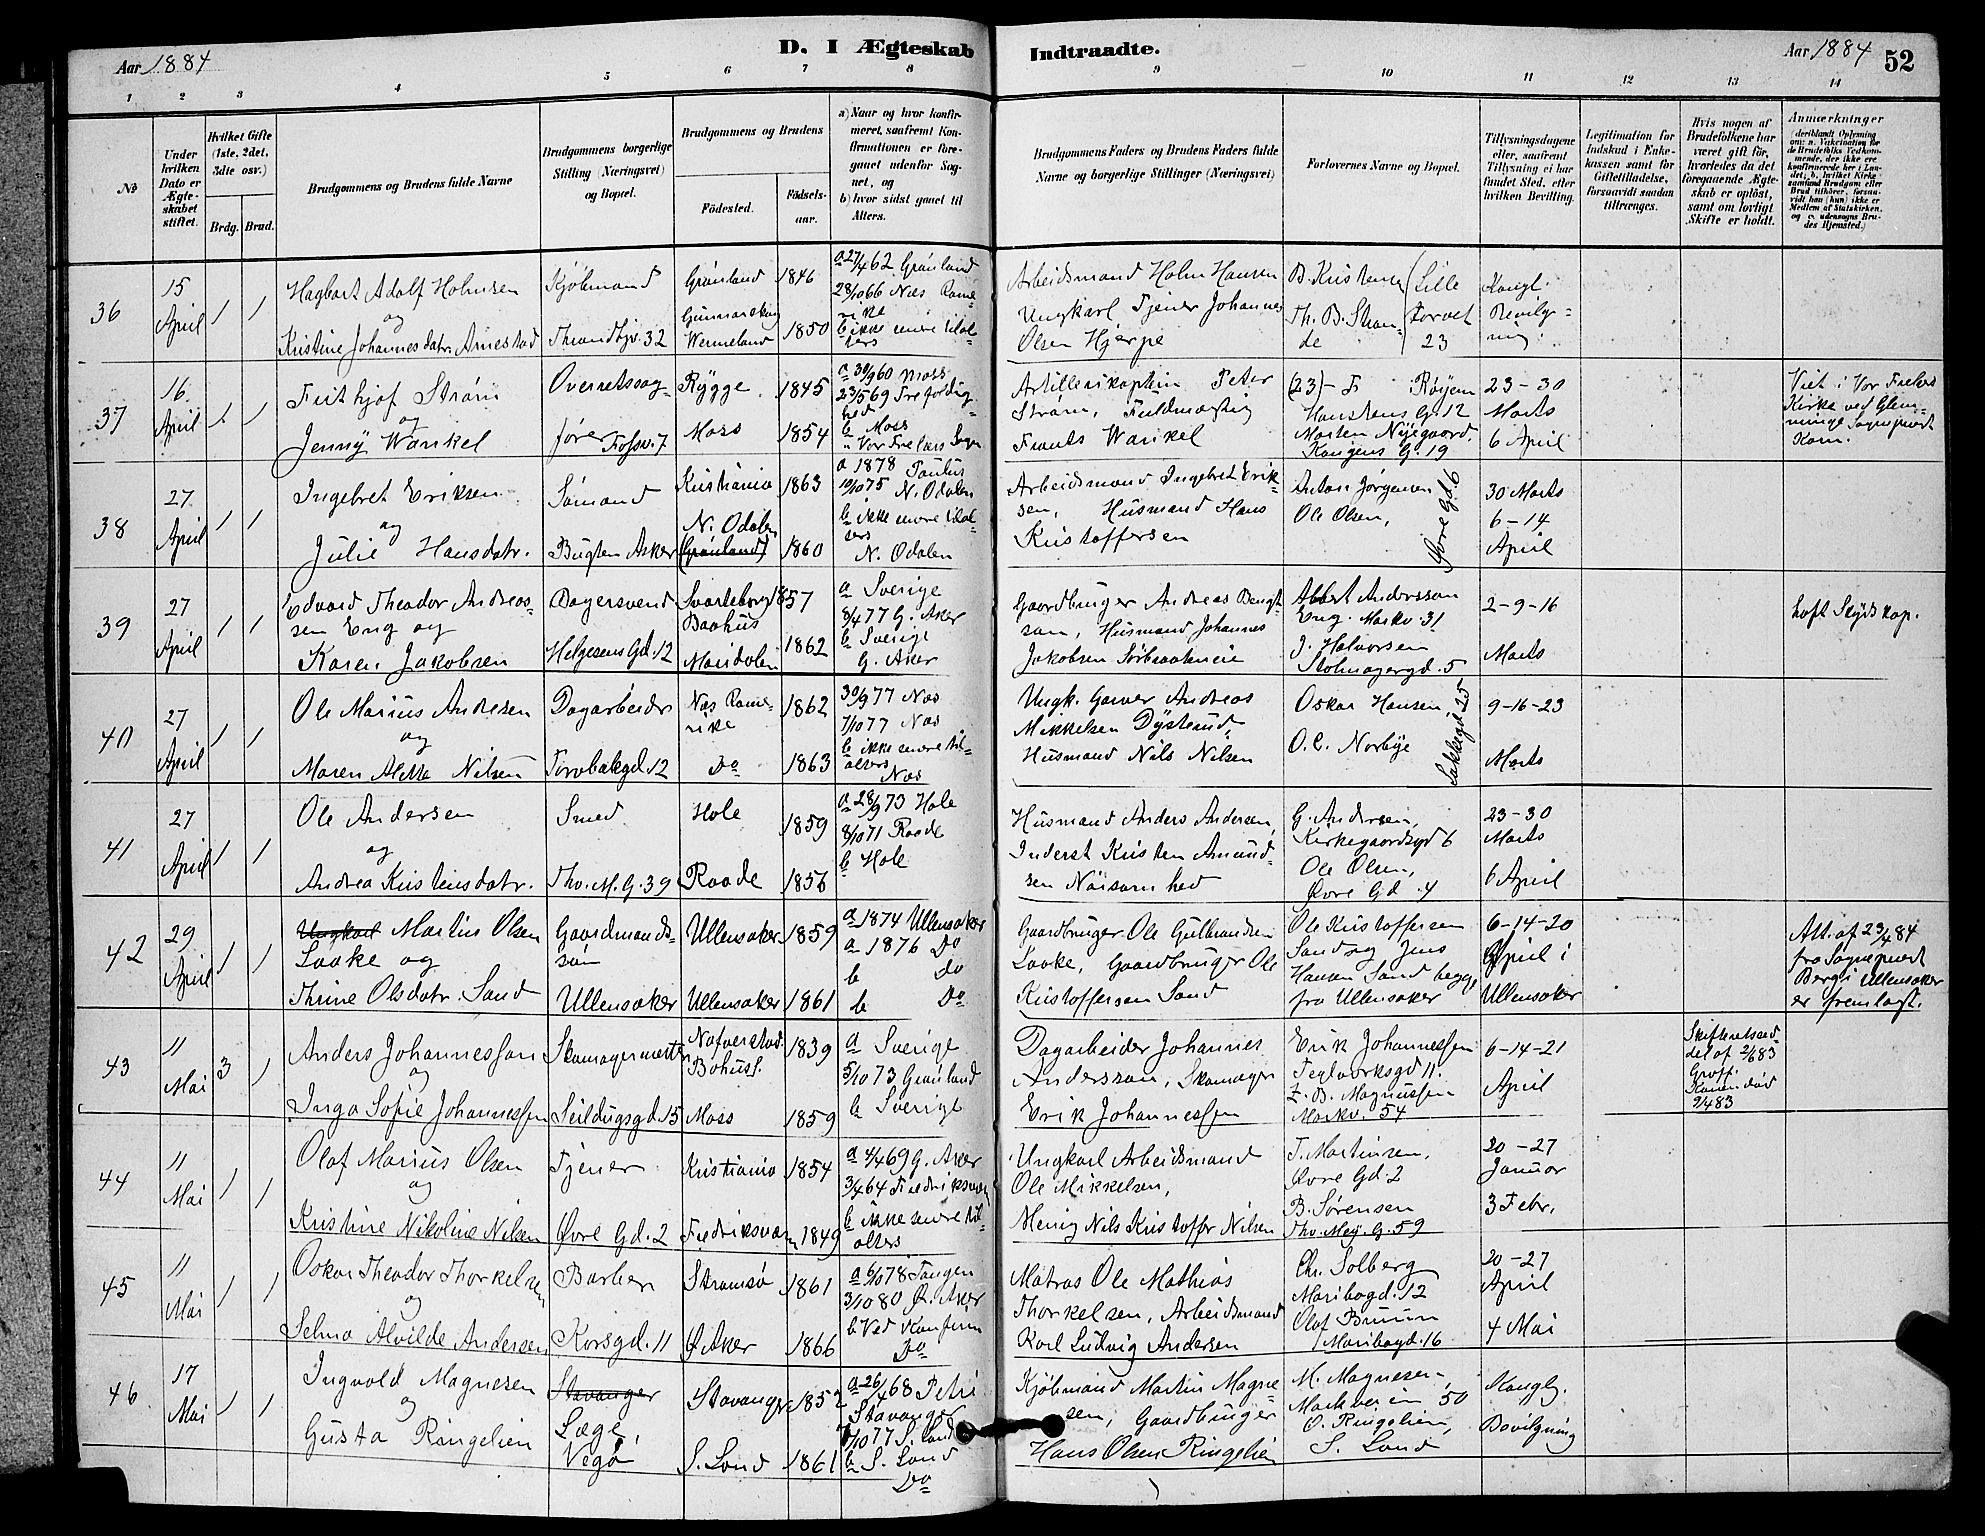 Aar 1884
D. I Ægteskab Indtraadte.
Aar 1884
52
1 2 3 4 5 6 7 8 9 10 11 12 13 14
No
Under hvilken Dato er Ægteskabet stiftet.
Hvilket Gifte (1ste, 2det, 3die osv.)
Brdg. Brud.
Brudgommens og Brudens fulde Navne
Brudgommens borgerlige Stilling (Næringsvei) og Bopæl.
Brudgommens og Brudens
Fødested.
Fødselsaar.
a) Naar og hvor konfirmeret, saafremt Konfirmationen er foregaaet udenfor Sognet, og
b) hvor sidst gaaet til Alters.
Brudgommens Faders og Brudens Faders fulde Navne og borgerlige Stillinger (Næringsvei)
Forlovernes Navne og Bopæl.
Tillysningsdagene eller, saafremt Tillysning ei har fundet Sted, efter hvilken Bevilling.
Legitimation for Indskud i Enkekassen samt for Giftetilladelse, forsaavidt saadan tiltrænges.
Hvis nogen af Brudefolkene har været gift før, hvorledes da det foregaaende Ægteskab er opløst, samt om lovligt Skifte er holdt.
Anmærkninger
36
15 April
1 1
Hagbart Adolf Holmsen
og
Kristine Johannesdatr. Arnestad
Kjøbmand
Throndhjv. 32
Grønland 1846
Gunnarskog Wermeland 1850
a 27/4 62 Grønland
28/10 66 Næs Romerike
b ikke senere tilalters
Arbeidsmand Holm Hansen
Ungkarl Tjener Johannes
Olsen Hjerpe
B. Kristensen
Th. B. Strande
Lille Torvet 23
Kongl. Bevilgning.
37
16 April
1 1
Frithjof Strøm
og
Jenny Wankel
Overretssagfører Fossv. 7
Rygge 1845
Moss 1854
a 30/9 60 Moss
23/5 69 Trefoldighed
b Moss
" Vor Frelsers Sogn
Artillerikaptein Peter
Strøm, Fuldmægtig
Frants Wankel
Hanstens G. 12
Morten Nyegaard,
Kongens G. 19
23-30
Marts
6 April
Viet i Vor Frelsers
Kirke ved Glemminge Sogneprest
38
27 April
1 1
Ingebret Eriksen
og
Julie Hansdatr.
Sømand
Bugten Aker
Kristiania 1863
N. Odalen
(Grønland) 1860
a 1878 Paulus
10/10 75 N. Odalen
b ikke senere tilalters
N. Odalen
Arbeidsmand Ingebret Eriksen, Husmand Hans
Kristoffersen
Anton Jørgensen
Ole Olsen,
30 Marts
6-14
April
39
27 April
1 1
Edvard Theodor Andreassen Eng og
Karen Jakobsen
Bagersvend
Helgesens Gd. 12
Svarteborg Baahus 1857
Maridalen 1862
a Sverige
8/4 77 G. Aker
b Sverige
G. Aker
Gaardbruger Andreas Bengtson, Husmand Johannes
Jakobsen Sørbraatmeie
Albert Andersson
Eng. Markv. 31
J. Halvorsen
Stolmagergd. 5
2-9-16
Marts
40
27 April
1 1
Ole Marius Andresen
og
Maren Alette Nilsen
Dagarbeider
Torvbakgd. 12
Næs Romerike 1862
Do 1863
30/9 77 Næs
7/10 77 Næs
b ikke senere tilalters
Næs
Ungk. Garver Andreas
Mikkelsen Dystrud,
Husmand Nils Nilsen
Oskar Hansen,
O. C. Norbye
9-16-23
Marts
41
27 April
1 1
Ole Andersen
og
Andrea Kristensdatr.
Smed
Thv. M. G. 39
Hole 1859
Raade 1856
a 28/9 73 Hole
8/10 71 Raade
b Hole
Husmand Anders Andersen,
Inderst Kristen Amundsen
G. Andersen,
Kirkegaardsgd 6
Ole Olsen,
Øvre Gd. 4
23-30
Marts
6 April
42
29 April
1 1
Ungkarl Martin Olsen
Laake og
Thrine Olsdatr. Sand
Gaardmandssøn
Ullensaker
Ullensaker 1859
Ullensaker 1861
a 1874 Ullensaker
a 1876 Do
b Do
b Do
Gaardbruger Ole Gulbrandsen
Laake, Gaardbruger Ole
Kristoffersen Sand
Ole Kristoffersen
Sand og Jens
Hansen Sand begge
fra Ullensaker
6-14-20
April i
Ullensaker
Att. af 23/4 84
fra Sogneprest
Berg i Ullensaker
er fremlagt.
43
11 Mai
3 1
Anders Johannesson
og
Inga Sofie Johannessen
Skomagermester
Seildugsgd. 15
Nafverstad Bohusl. 1839
Moss 1859
a Sverige
5/10 73 Grønland
b Sverige
Dagarbeider Johannes
Andersson, Skomager
Erik Johannessen
Erik Johannessen
Teglverksgd 11.
B. Magnussen
Markv. 54
6-14-21
April
Skifteretssedel af 2/6 83
Groff.
Konen død
9/4 83
44
11 Mai
1 1
Olaf Marius Olsen
og
Kristine Nikoline Nilsen
Tjener
Øvre Gd. 2
Kristiania 1854
Fredriksværn 1849
a 4/4 69 G. Aker
3/4 64 Fredriksværn
b ikke senere tilalters
Ungkarl Arbeidsmand
Ole Mikkelsen,
Menig Nils Kristoffer Nilsen
T. Martinsen,
Øvre Gd. 2
B. Sørensen
Thv. Mey. G. 59
20-27
Januar
3 Febr.
45
11 Mai
1 1
Oskar Theodor Thorkelsen
og
Selma Alvilde Andersen
Barber
Korsgd. 11
Strømsø 1861
Ø. Aker 1866
a 6/10 78 Tangen
3/10 80 Ø. Aker
b Ved Konfirm
Do
Matros Ole Mathias
Thorkelsen, Arbeidsmand
Karl Ludvig Andersen
Chr. Solberg
Maribogd. 12
Olaf Bruun
Maribogd. 16
20-27
April
4 Mai
46
17 Mai
1 1
Ingvald Magnesen
og
Gusta Ringelien
Stavanger
Læge,
Vegø
Stavanger 1852
S. Land 1861
a 26/4 68 Petri
Stavanger
7/10 77 S. Land
b S. Land
Do
Kjøbmand Martin Magnesen, Gaardbruger
Hans Olsen Ringelien
M. Magnesen
Markveien 50
O. Ringelien,
S. Land
Kongl.
Bevilgning